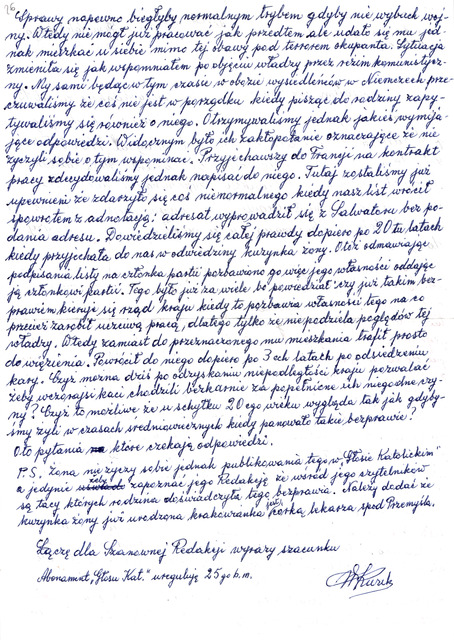 76
Sprawy napewno biegłyby normalnym trybem gdyby nie wybuch woj-
ny. Wtedy nie mógł już pracować jak przedtem ale udało się mu jed-
nak mieszkać u siebie mimo tej obawy pod terrorem okupanta. Sytuacja
zmieniła się jak wspomniałem po objęciu władzy przez reżim komunistycz-
ny. My sami będąc w tym czasie w obozie wysiedleńców w Niemczech prze-
czuwaliśmy że coś nie jest w porządku kiedy pisząc do rodziny zapy-
tywaliśmy się również o niego. Otrzymywaliśmy jednak jakieś wymija-
jące odpowiedzi. Widocznym było ich zakłopotanie oznaczające że nie
życzyli sobie o tym wspominać. Przyjechawszy do Francji na kontrakt
pracy zdecydowaliśmy jednak napisać do niego. Tutaj zostaliśmy już
upewnieni że zdarzyło się coś nienormalnego kiedy nasz list wrócił
spowrotem z adnotacją: adresat wyprowadził się z Salwatoru bez po-
dania adresu. Dowiedzieliśmy się całej prawdy dopiero po 20 tu latach
kiedy przyjechała do nas w odwiedziny kuzynka żony. Otóż odmawiając
podpisania listy na członka partii pozbawiono go więc jego własności oddając
ją członkowi partii. Tego było już za wiele, bo powiedział czy już takim bez-
prawiem kieruje się rząd kraju kiedy to pozbawia własności tego na co
przecież zarobił uczciwą pracą, dlatego tylko że niepodziela poglądów tej
władzy. Wtedy zamiast do przeznaczonego mu mieszkania trafił prosto
do więzienia. Powrócił do niego dopiero po 3 ch latach po odsiedzeniu
kary. Czyż można dziś po odzyskaniu niepodległości kraju pozwalać
żeby wczorajsi kaci chodzili bezkarnie za popełnione ich niegodne czy-
ny? Czyż to możliwe że u schyłku 20 ego wieku wygląda tak jak gdyby-
śmy żyli w czasach średniowiecznych kiedy panowało takie bezprawie?
Oto pytania na które czekają odpowiedzi.
P.S. Żona nie życzy sobie jednak publikowania tego w „Głosie Katolickim"
a jedynie żeby zapoznać jego Redakcję że wśród jego czytelników
są tacy których rodzina doświadczyła tego bezprawia. Należy dodać że
kuzynka żony już urodzona krakowianka jest córką lekarza spod Przemyśla.
Łączę dla Szanownej Redakcji wyrazy szacunku
Abonament „Głosu Kat." ureguluję 25 go b.m.